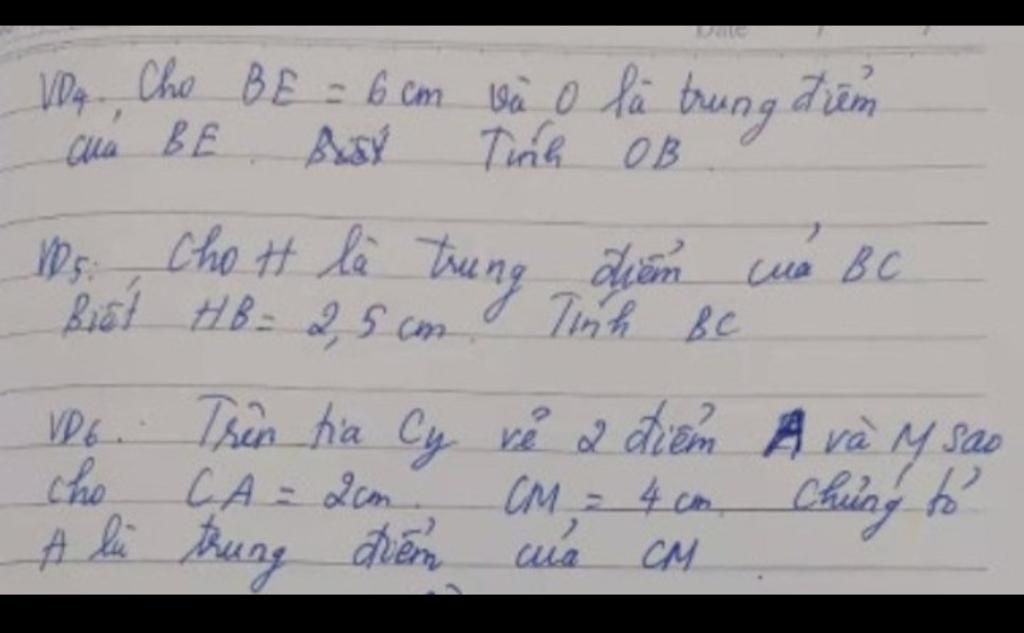 Date
VD4. Cho BE = 6 cm và O là trung điểm
của BE. Tính OB
VD5: Cho H là trung điểm của BC
Biết HB = 2,5 cm. Tính BC
VD6. Trên tia Cy vẽ 2 điểm A và M sao
cho CA = 2cm. CM = 4 cm. Chứng tỏ
A là trung điểm của CM.